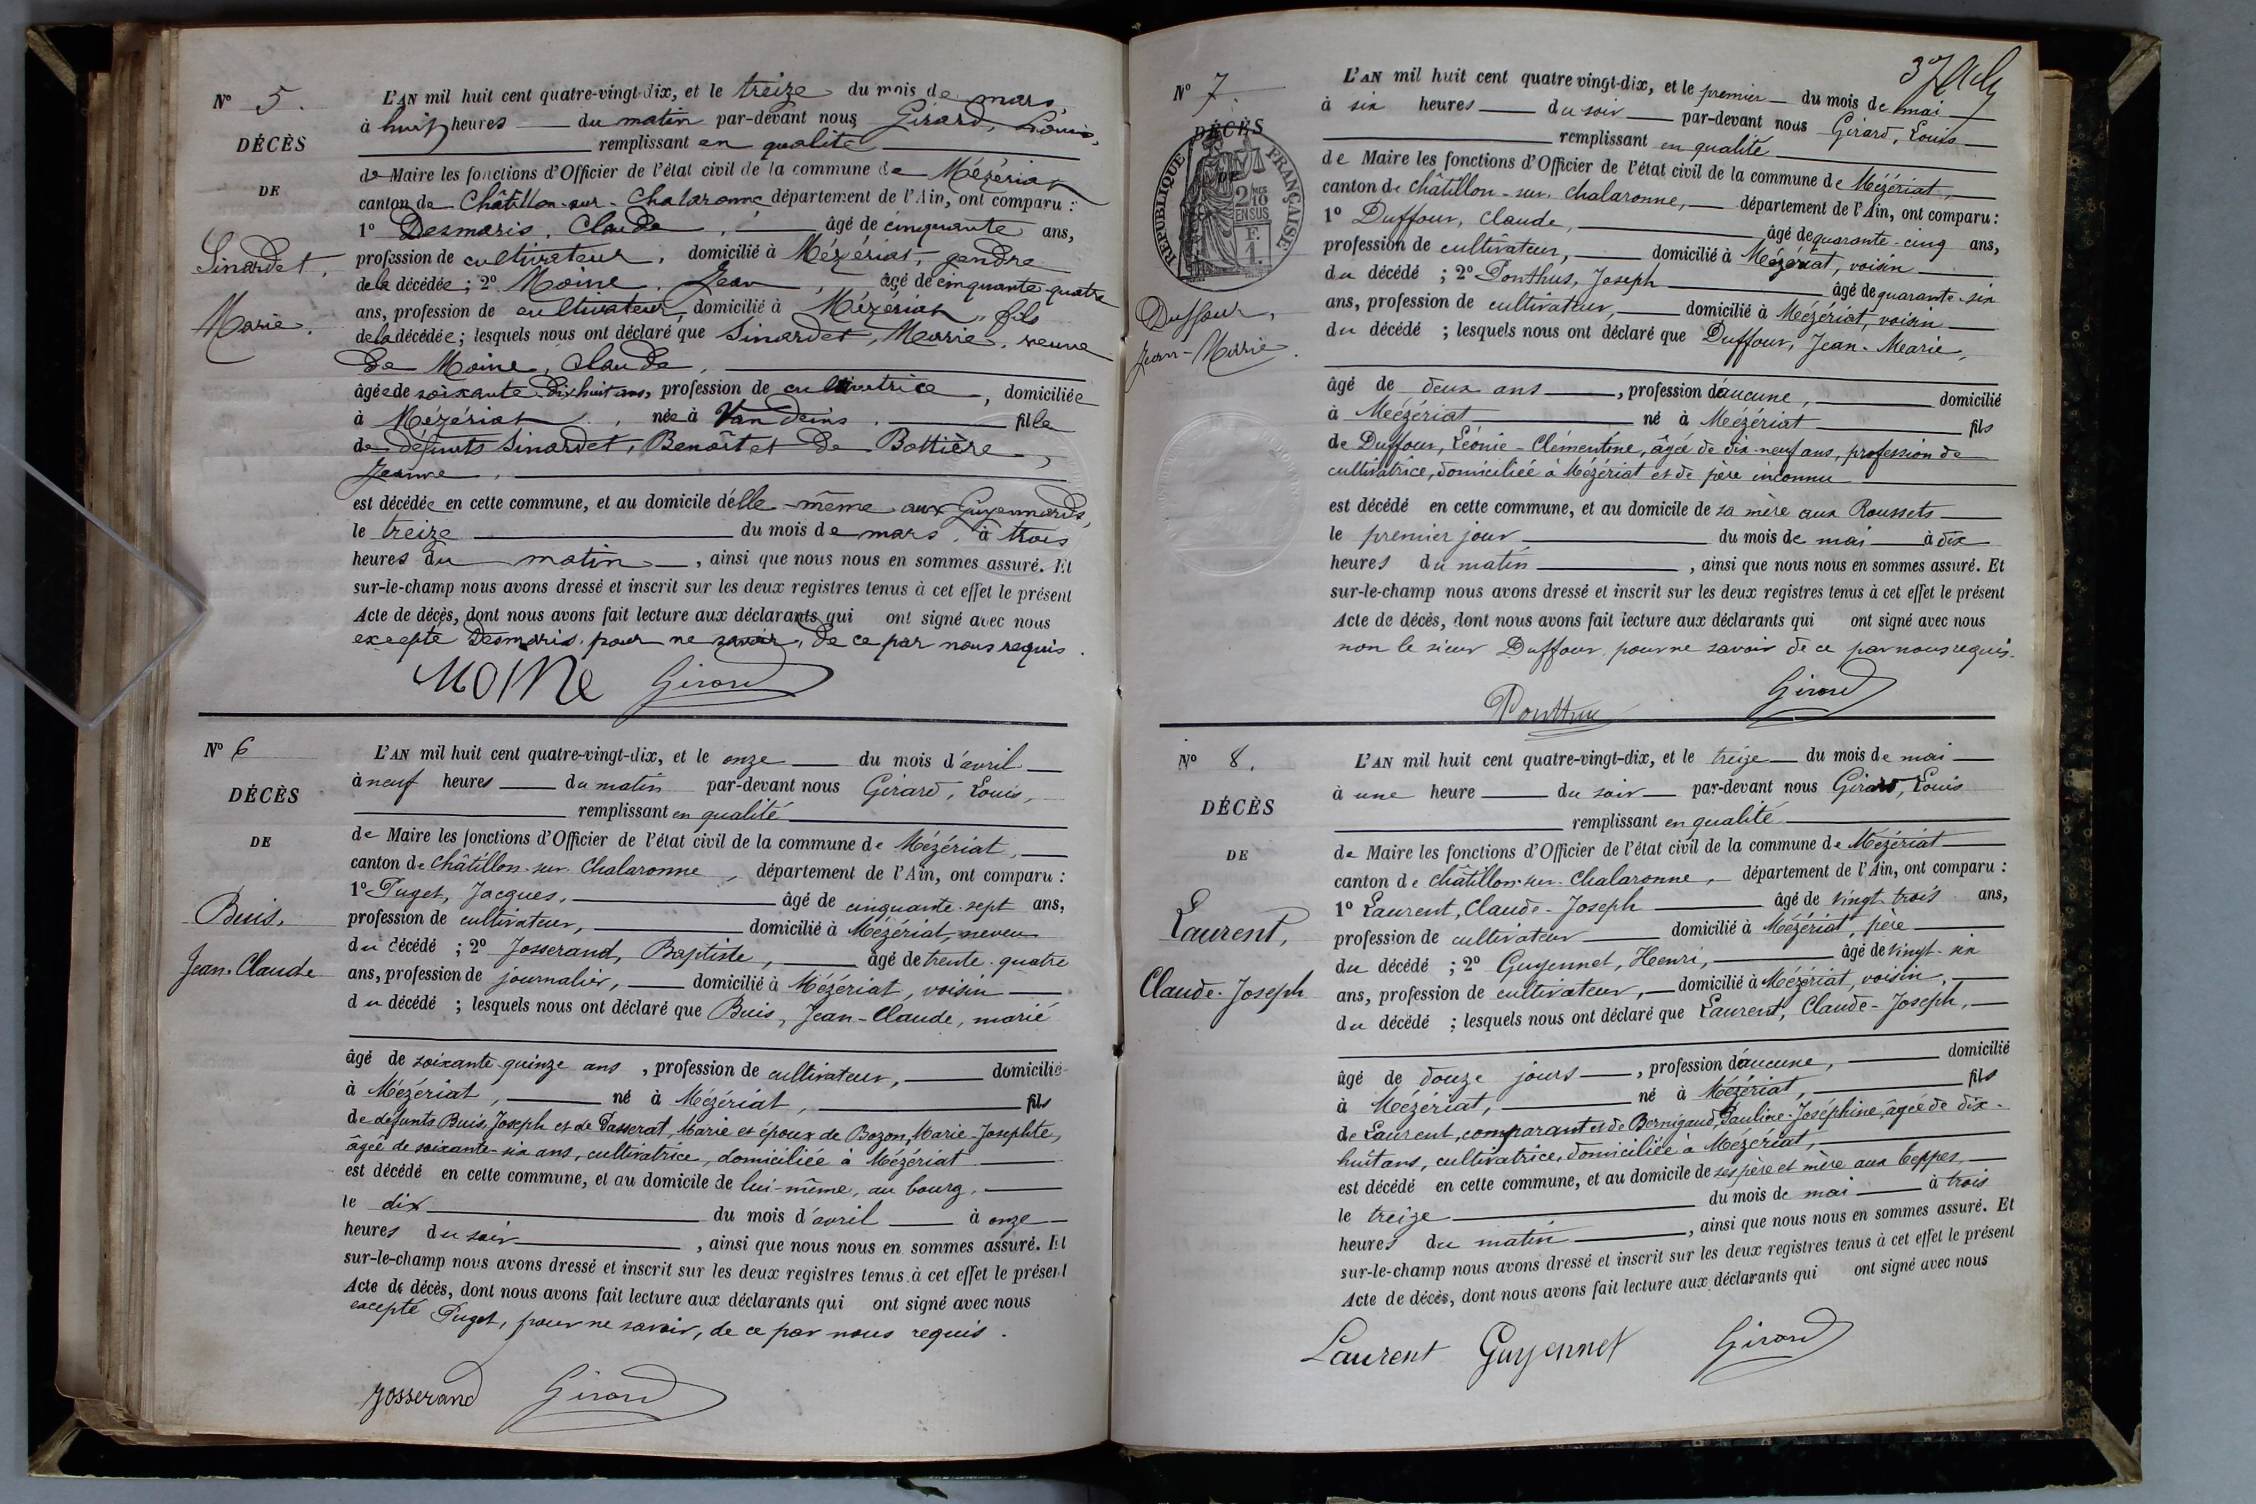 N° 5.
DÉCÈS
DE
Sinardet,
Marie.
L'AN mil huit cent quatre-vingt-dix, et le treize du mois de mars,
à huit heures du matin par-devant nous Girard, Louis,
remplissant en qualité
de Maire les fonctions d'Officier de l'état civil de la commune de Mézériat
canton de Châtillon-sur-Chalaronne, département de l'Ain, ont comparu :
1° Desmaris, Claude, âgé de cinquante ans,
profession de cultivateur, domicilié à Mézériat, gendre
de la décédée ; 2° Moine, Jean, âgé de cinquante-quatre
ans, profession de cultivateur, domicilié à Mézériat, fils
de la décédée ; lesquels nous ont déclaré que Sinardet, Marie, veuve
de Moine, Claude,
âgée de soixante-dix huit ans, profession de cultivatrice, domiciliée
à Mézériat, née à Vandeins, fille
de défunts Sinardet, Benoît et de Bottière,
Jeanne,
est décédée en cette commune, et au domicile d'elle-même aux Guyennards,
le treize du mois de mars, à trois
heures du matin, ainsi que nous nous en sommes assuré. Et
sur-le-champ nous avons dressé et inscrit sur les deux registres tenus à cet effet le présent
Acte de décès, dont nous avons fait lecture aux déclarants qui ont signé avec nous
excepté Desmaris, pour ne savoir, de ce par nous requis.
MOINE Girard
N° 6
DÉCÈS
DE
Buis,
Jean-Claude
L'AN mil huit cent quatre-vingt-dix, et le onze du mois d'avril
à neuf heures du matin par-devant nous Girard, Louis,
remplissant en qualité
de Maire les fonctions d'Officier de l'état civil de la commune de Mézériat,
canton de Châtillon-sur-Chalaronne, département de l'Ain, ont comparu :
1° Puget, Jacques, âgé de cinquante-sept ans,
profession de cultivateur, domicilié à Mézériat, neveu
du décédé ; 2° Josserand, Baptiste, âgé de trente-quatre
ans, profession de journalier, domicilié à Mézériat, voisin
du décédé ; lesquels nous ont déclaré que Buis, Jean-Claude, marié
âgé de soixante-quinze ans, profession de cultivateur, domicilié
à Mézériat, né à Mézériat, fils
de défunts Buis, Joseph et de Passerat, Marie et époux de Bozon, Marie-Josephte,
âgée de soixante-six ans, cultivatrice, domiciliée à Mézériat
est décédé en cette commune, et au domicile de lui-même, au bourg,
le dix du mois d'avril à onze
heures du soir, ainsi que nous nous en sommes assuré. Et
sur-le-champ nous avons dressé et inscrit sur les deux registres tenus à cet effet le présent
Acte de décès, dont nous avons fait lecture aux déclarants qui ont signé avec nous
excepté Puget, pour ne savoir, de ce par nous requis.
Josserand Girard
37
N° 7.
DÉCÈS
DE
RÉPUBLIQUE FRANÇAISE
2/10 EN SUS
F. 1.
Duffour,
Jean-Marie.
L'AN mil huit cent quatre vingt-dix, et le premier du mois de mai
à six heures du soir par-devant nous Girard, Louis
remplissant en qualité
de Maire les fonctions d'Officier de l'état civil de la commune de Mézériat,
canton de Châtillon-sur-Chalaronne, département de l'Ain, ont comparu :
1° Duffour, Claude, âgé de quarante-cinq ans,
profession de cultivateur, domicilié à Mézériat, voisin
du décédé ; 2° Ponthus, Joseph âgé de quarante-six
ans, profession de cultivateur, domicilié à Mézériat, voisin
du décédé ; lesquels nous ont déclaré que Duffour, Jean-Marie,
âgé de deux ans, profession d'aucune, domicilié
à Mézériat né à Mézériat fils
de Duffour, Léonie-Clémentine, âgée de dix-neuf ans, profession de
cultivatrice, domiciliée à Mézériat et de père inconnu
est décédé en cette commune, et au domicile de sa mère aux Roussets
le premier jour du mois de mai à dix
heures du matin, ainsi que nous nous en sommes assuré. Et
sur-le-champ nous avons dressé et inscrit sur les deux registres tenus à cet effet le présent
Acte de décès, dont nous avons fait lecture aux déclarants qui ont signé avec nous
non le sieur Duffour, pour ne savoir de ce par nous requis.
Ponthus Girard
N° 8.
DÉCÈS
DE
Laurent,
Claude-Joseph
L'AN mil huit cent quatre-vingt-dix, et le treize du mois de mai
à une heure du soir par-devant nous Girard, Louis
remplissant en qualité
de Maire les fonctions d'Officier de l'état civil de la commune de Mézériat
canton de Châtillon-sur-Chalaronne, département de l'Ain, ont comparu :
1° Laurent, Claude-Joseph âgé de vingt-trois ans,
profession de cultivateur domicilié à Mézériat, père
du décédé ; 2° Guyennet, Henri, âgé de vingt-six
ans, profession de cultivateur, domicilié à Mézériat, voisin,
du décédé ; lesquels nous ont déclaré que Laurent, Claude-Joseph,
âgé de douze jours, profession d'aucune, domicilié
à Mézériat, né à Mézériat, fils
de Laurent, comparant et de Bernigaud, Pauline-Joséphine, âgée de dix-
huit ans, cultivatrice, domiciliée à Mézériat,
est décédé en cette commune, et au domicile de ses père et mère aux Teppes,
le treize du mois de mai à trois
heures du matin, ainsi que nous nous en sommes assuré. Et
sur-le-champ nous avons dressé et inscrit sur les deux registres tenus à cet effet le présent
Acte de décès, dont nous avons fait lecture aux déclarants qui ont signé avec nous
Laurent Guyennet Girard